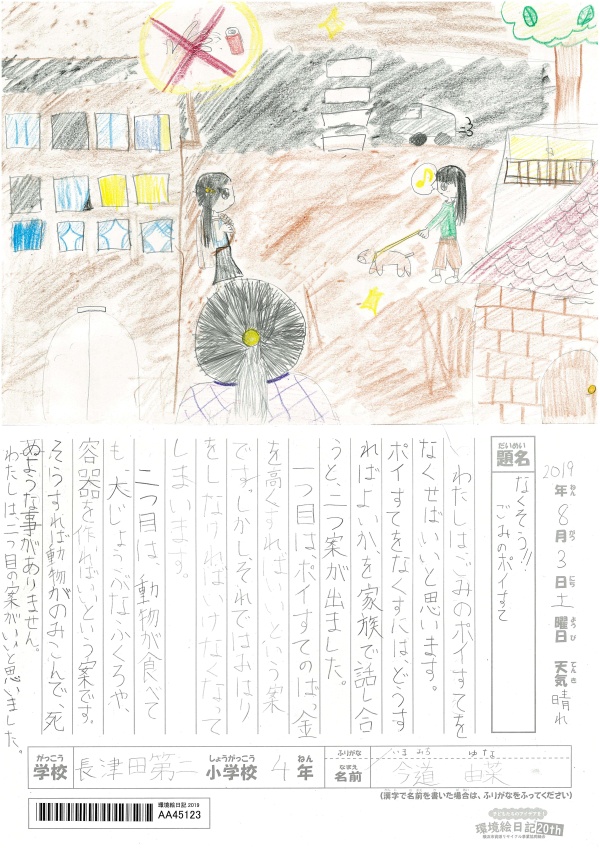 2019年8月3日土曜日 天気晴れ
ねん がつ にち ようび てんき
だいめい
題名
なくそう!!
ごみのポイすて
わたしは、ごみのポイすてを
なくせばいいと思います。
ポイすてをなくすには、どうす
ればよいか、を家族で話し合
うと、二つ案が出ました。
一つ目は、ポイすてのばっ金
を高くすればいいという案
です。しかし、それではおはり
をしなければいけなくなって
しまいます。
二つ目は、動物が食べて
も、大じょうぶなふくろや、
容器を作ればいいという案です。
そうすれば動物がのみこんで、死
ぬような事がありません。
わたしは、二つ目の案がいいと思いました。
がっこう しょうがっこう ねん
学校 長津田第二小学校 4年
ふりがな いまみち ゆな
なまえ
名前 今道 由菜
(漢字で名前を書いた場合は、ふりがなをふってください)
環境絵日記 2019
AA45123
環境絵日記20th